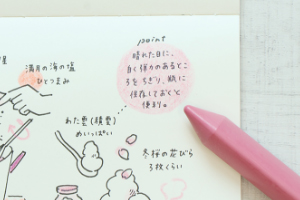 満月の海の塩
ひとつまみ
point
晴れた日に、
白く弾力のあるとこ
ろをちぎり、瓶に
保存しておくと
便利。
わた雲(積雲)
めいっぱい
冬桜の花びら
3枚くらい